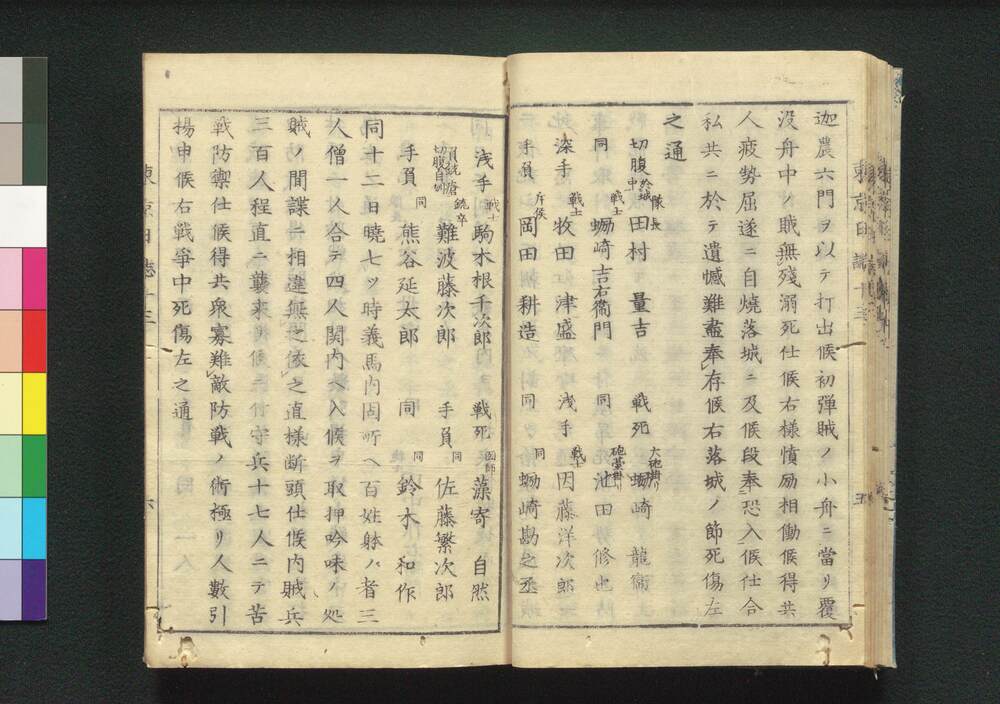 迦農六門ヲ以テ打出候初弾賊ノ小舟ニ當リ覆
没舟中ノ賊無残溺死仕候右様憤励相働候得共
人疲勢屈遂ニ自焼落城ニ及候段奉恐入候仕合
私共ニ於テ遺憾難盡奉存候右落城ノ節死傷左
之通
切腹 於城中 隊長 田村量吉 戦死 大砲掛リ 蛎崎龍衛
同 戦士 蛎崎吉右衛門 同 砲臺掛リ 池田修也
深手 戦士 牧田津盛 浅手 戦士 因藤洋次郎
手負 斥候 岡田耕造 同 同 蛎崎勘之丞
浅手 戦士 駒木根千次郎 戦死 医師 藻寄自然
銃卒 難波藤次郎 手負 同 佐藤繁次郎
手負 同 熊谷延太郎 同 同 鈴木和作
同十二日暁七ツ時義馬内固所ヘ百姓躰ノ者三
人僧一人合テ四人関内ヘ入候ヲ取押吟味ノ処
賊ノ間諜ニ相違無之依之直様断頭仕候内賊兵
三百人程直ニ襲来候ニ付守兵十七人ニテ苦
戦防禦仕候得共衆寡難敵防戦ノ術極リ人數引
揚申候右戦爭中死傷左之通
東京日誌十三
五
六